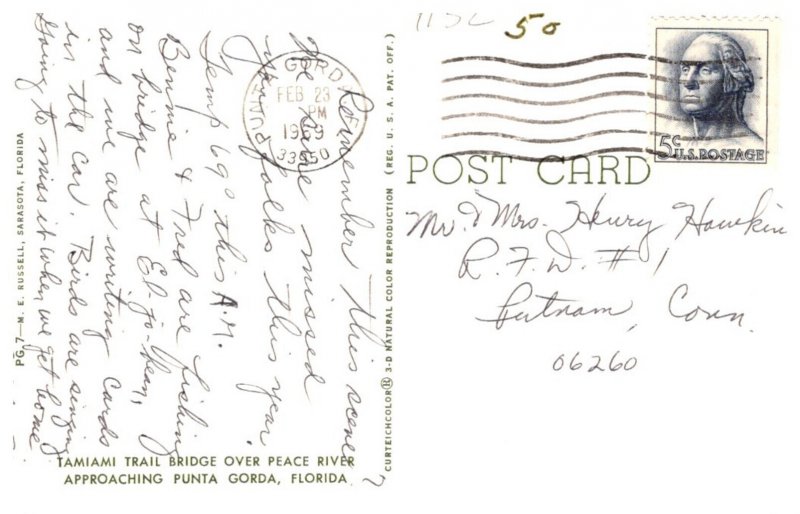 Remember this scene?
We have missed
you folks this year.
Temp 69° this A.M.
Bennie & Fred are fishing
on bridge at El-jo-bean,
and we are writing cards
in the car. Birds are singing
Going to miss it when we get home
PUNTA GORDA, FL
FEB 23
PM
1969
33950
TAMIAMI TRAIL BRIDGE OVER PEACE RIVER
APPROACHING PUNTA GORDA, FLORIDA
PG.7—M. E. RUSSELL, SARASOTA, FLORIDA
CURTEICHCOLOR® 3-D NATURAL COLOR REPRODUCTION (REG. U. S. A. PAT. OFF.)
1132
50
5c U.S. POSTAGE
POST CARD
Mr. & Mrs. Henry Hawkin
R.F.D. #1
Putnam, Conn.
06260